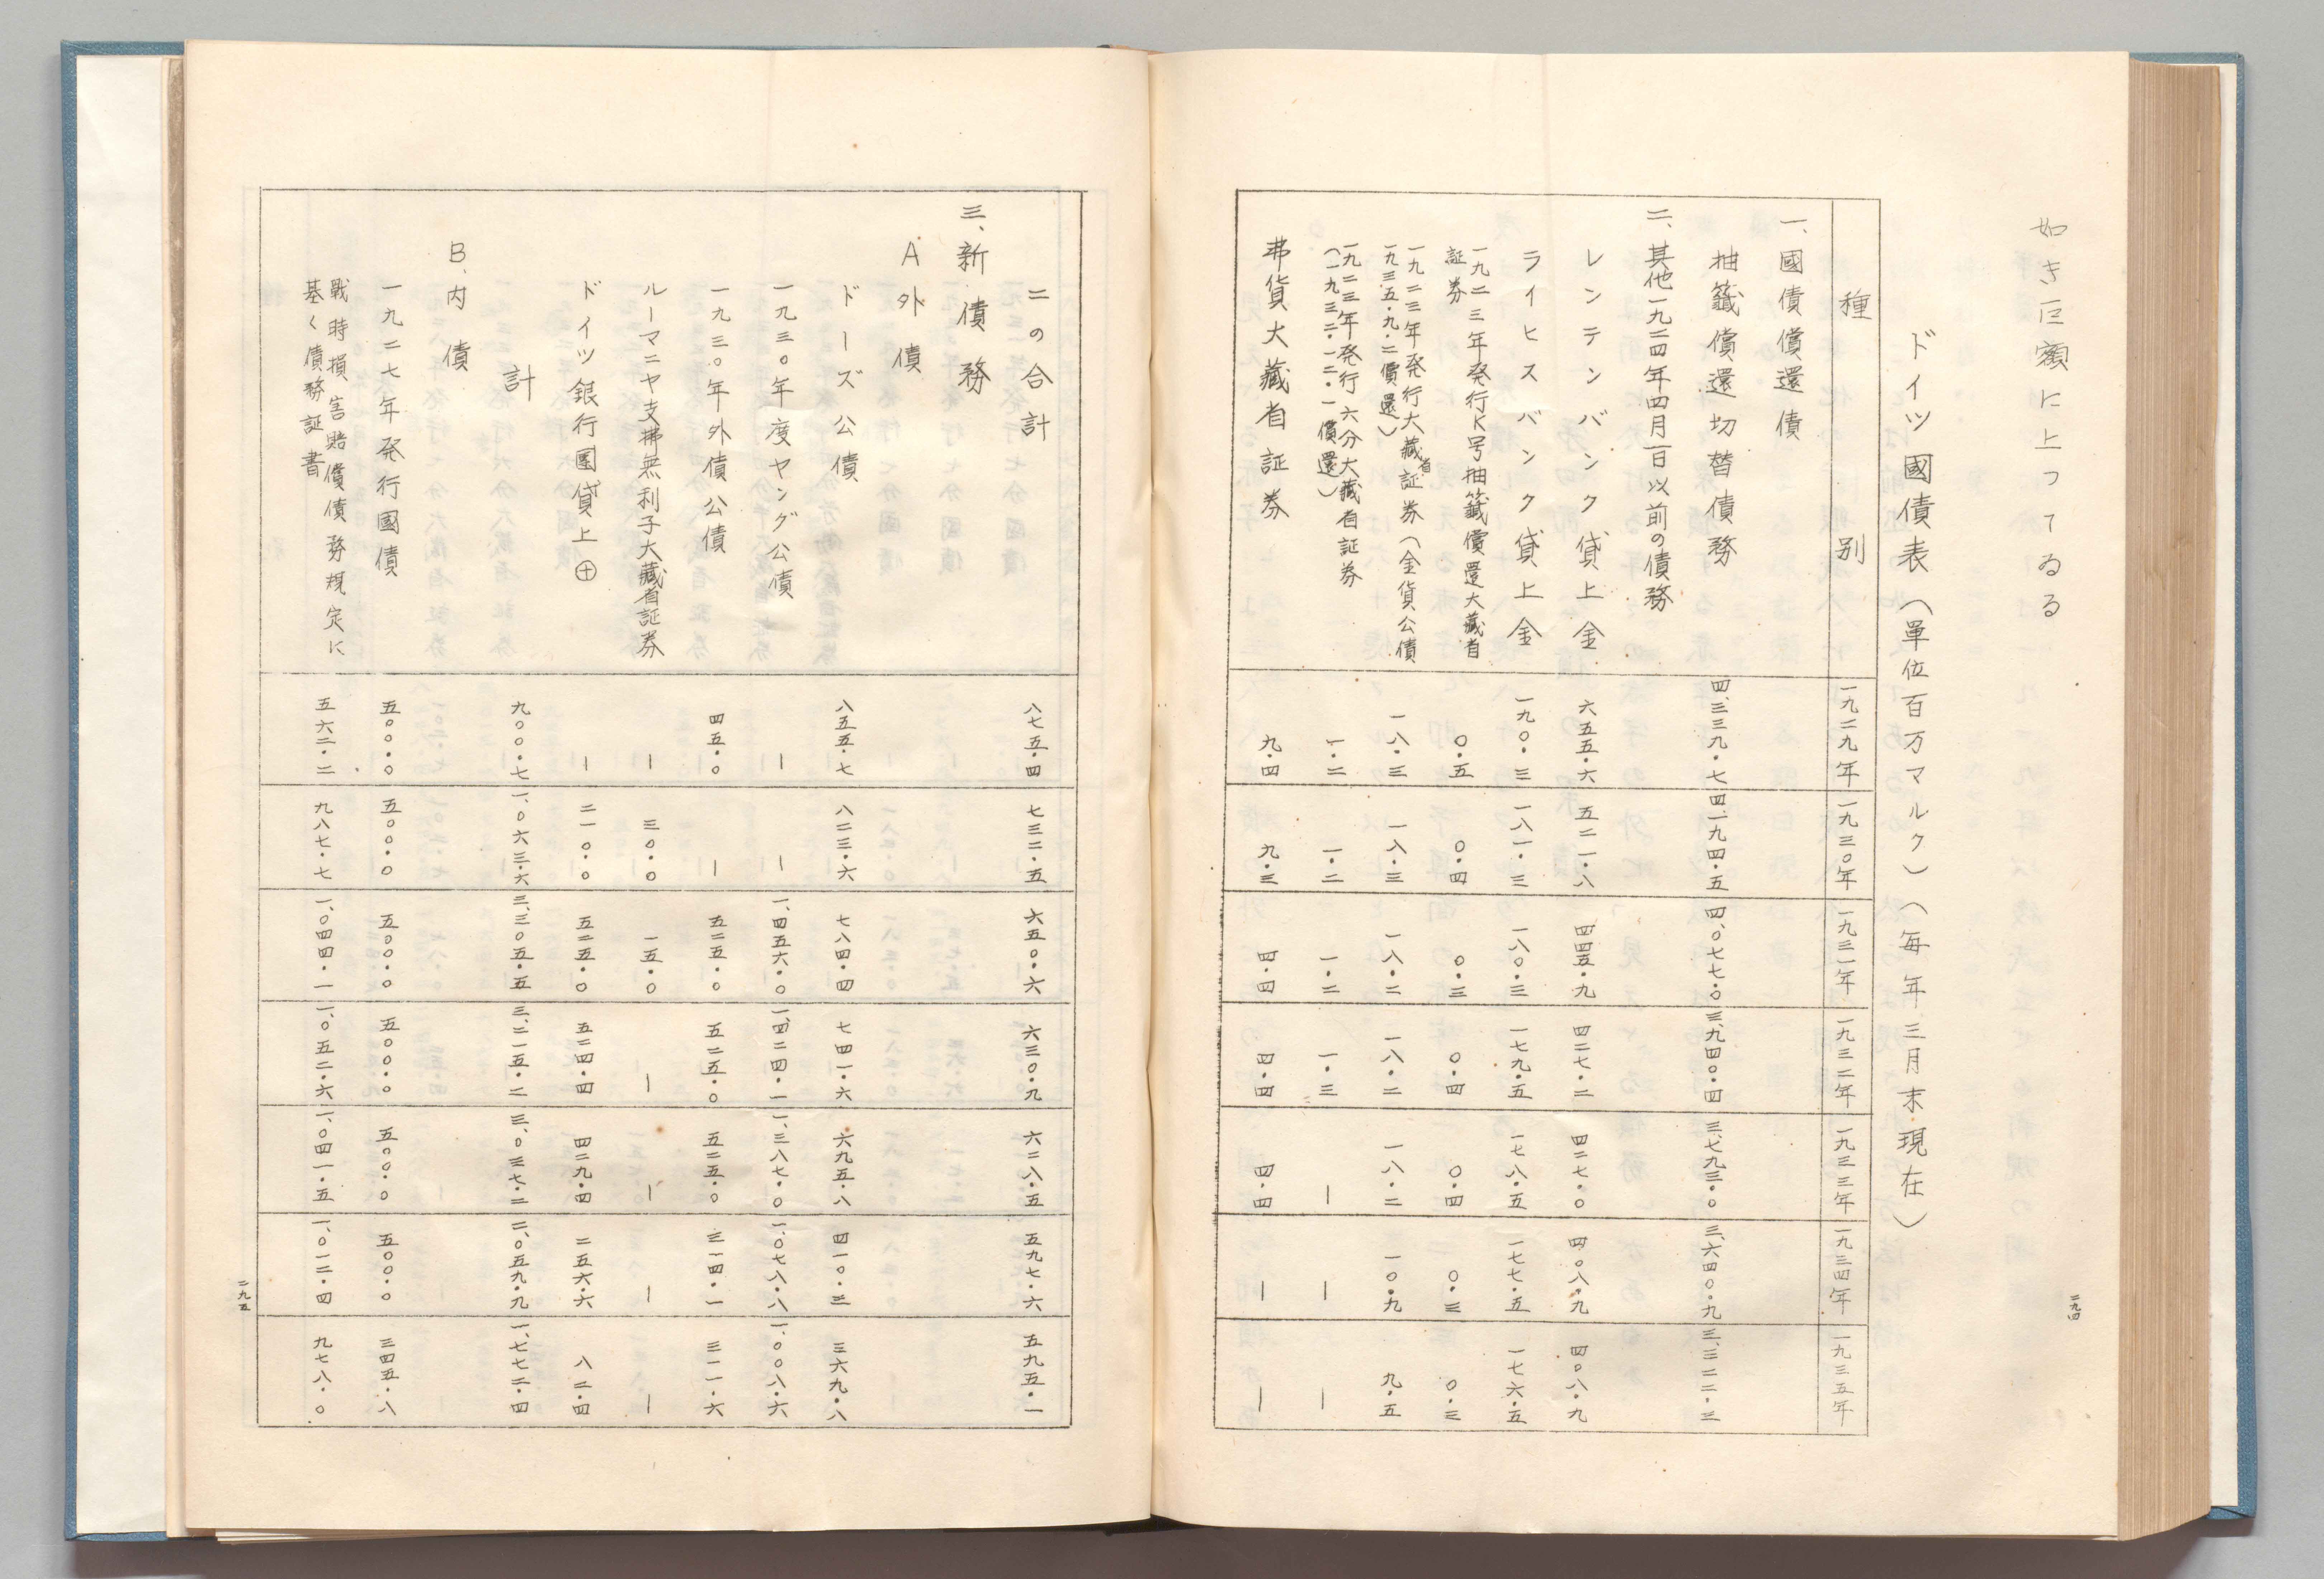 如き巨額に上つてゐる
ドイツ國債表（單位百万マルク）（每年三月末現在）
種別 一九二九年 一九三〇年 一九三一年 一九三二年 一九三三年 一九三四年 一九三五年
一、國債償還債
抽籤償還切替債務 四、三三九・七 四、一九四・五 四、〇七七・〇 三、九四〇・四 三、七九三・〇 三、六四〇・九 三、三二二・三
二、其他一九二四年四月一日以前の債務
レンテンバンク貸上金 六五五・六 五二一・八 四四五・九 四二七・二 四二七・〇 四〇八・九 四〇八・九
ライヒスバンク貸上金 一九〇・三 一八一・三 一八〇・三 一七九・五 一七八・五 一七七・五 一七六・五
一九二三年発行K号抽籤償還大藏省
証券 〇・五 〇・四 〇・三 〇・四 〇・四 〇・三 〇・三
一九二三年発行大藏省証券（金貨公債
一九三五・九・二償還） 一八・三 一八・三 一八・二 一八・二 一八・二 一〇・九 九・五
一九二三年発行六分大藏省証券
（一九三二・一二・一償還） 一・二 一・二 一・二 一・三 ー ー ー
弗貨大藏省証券 九・四 九・三 四・四 四・四 四・四 ー ー
二九四
二の合計 八七五・四 七三二・五 六五〇・六 六三〇・九 六二八・五 五九七・六 五九五・一
三、新債務
A 外債
ドーズ公債 八五五・七 八二三・六 七八四・四 七四一・六 六九五・八 四一〇・三 三六九・八
一九三〇年度ヤング公債 ー ー 一、四五六・〇 一、四二四・一 一、三八七・〇 一、〇七八・八 一、〇〇八・六
一九三〇年外債公債 四五・〇 ー 五二五・〇 五二五・〇 五二五・〇 三一四・一 三一一・六
ルーマニヤ支拂無利子大藏省証券 ー 三〇・〇 一五・〇 ー ー ー ー
ドイツ銀行團貸上㊉ ー 二一〇・〇 五二五・〇 五二四・四 四二九・四 二五六・六 八二・四
計 九〇〇・七 一、〇六三・六 三、三〇五・五 三、二一五・二 三、〇三七・二 二、〇五九・九 一、七七二・四
B、内債
一九二七年発行國債 五〇〇・〇 五〇〇・〇 五〇〇・〇 五〇〇・〇 五〇〇・〇 五〇〇・〇 三四五・八
戰時損害賠償債務規定に
基く債務証書 五六二・二 九八七・七 一、〇四四・一 一、〇五二・六 一、〇四一・五 一、〇一二・四 九七八・〇
二九五